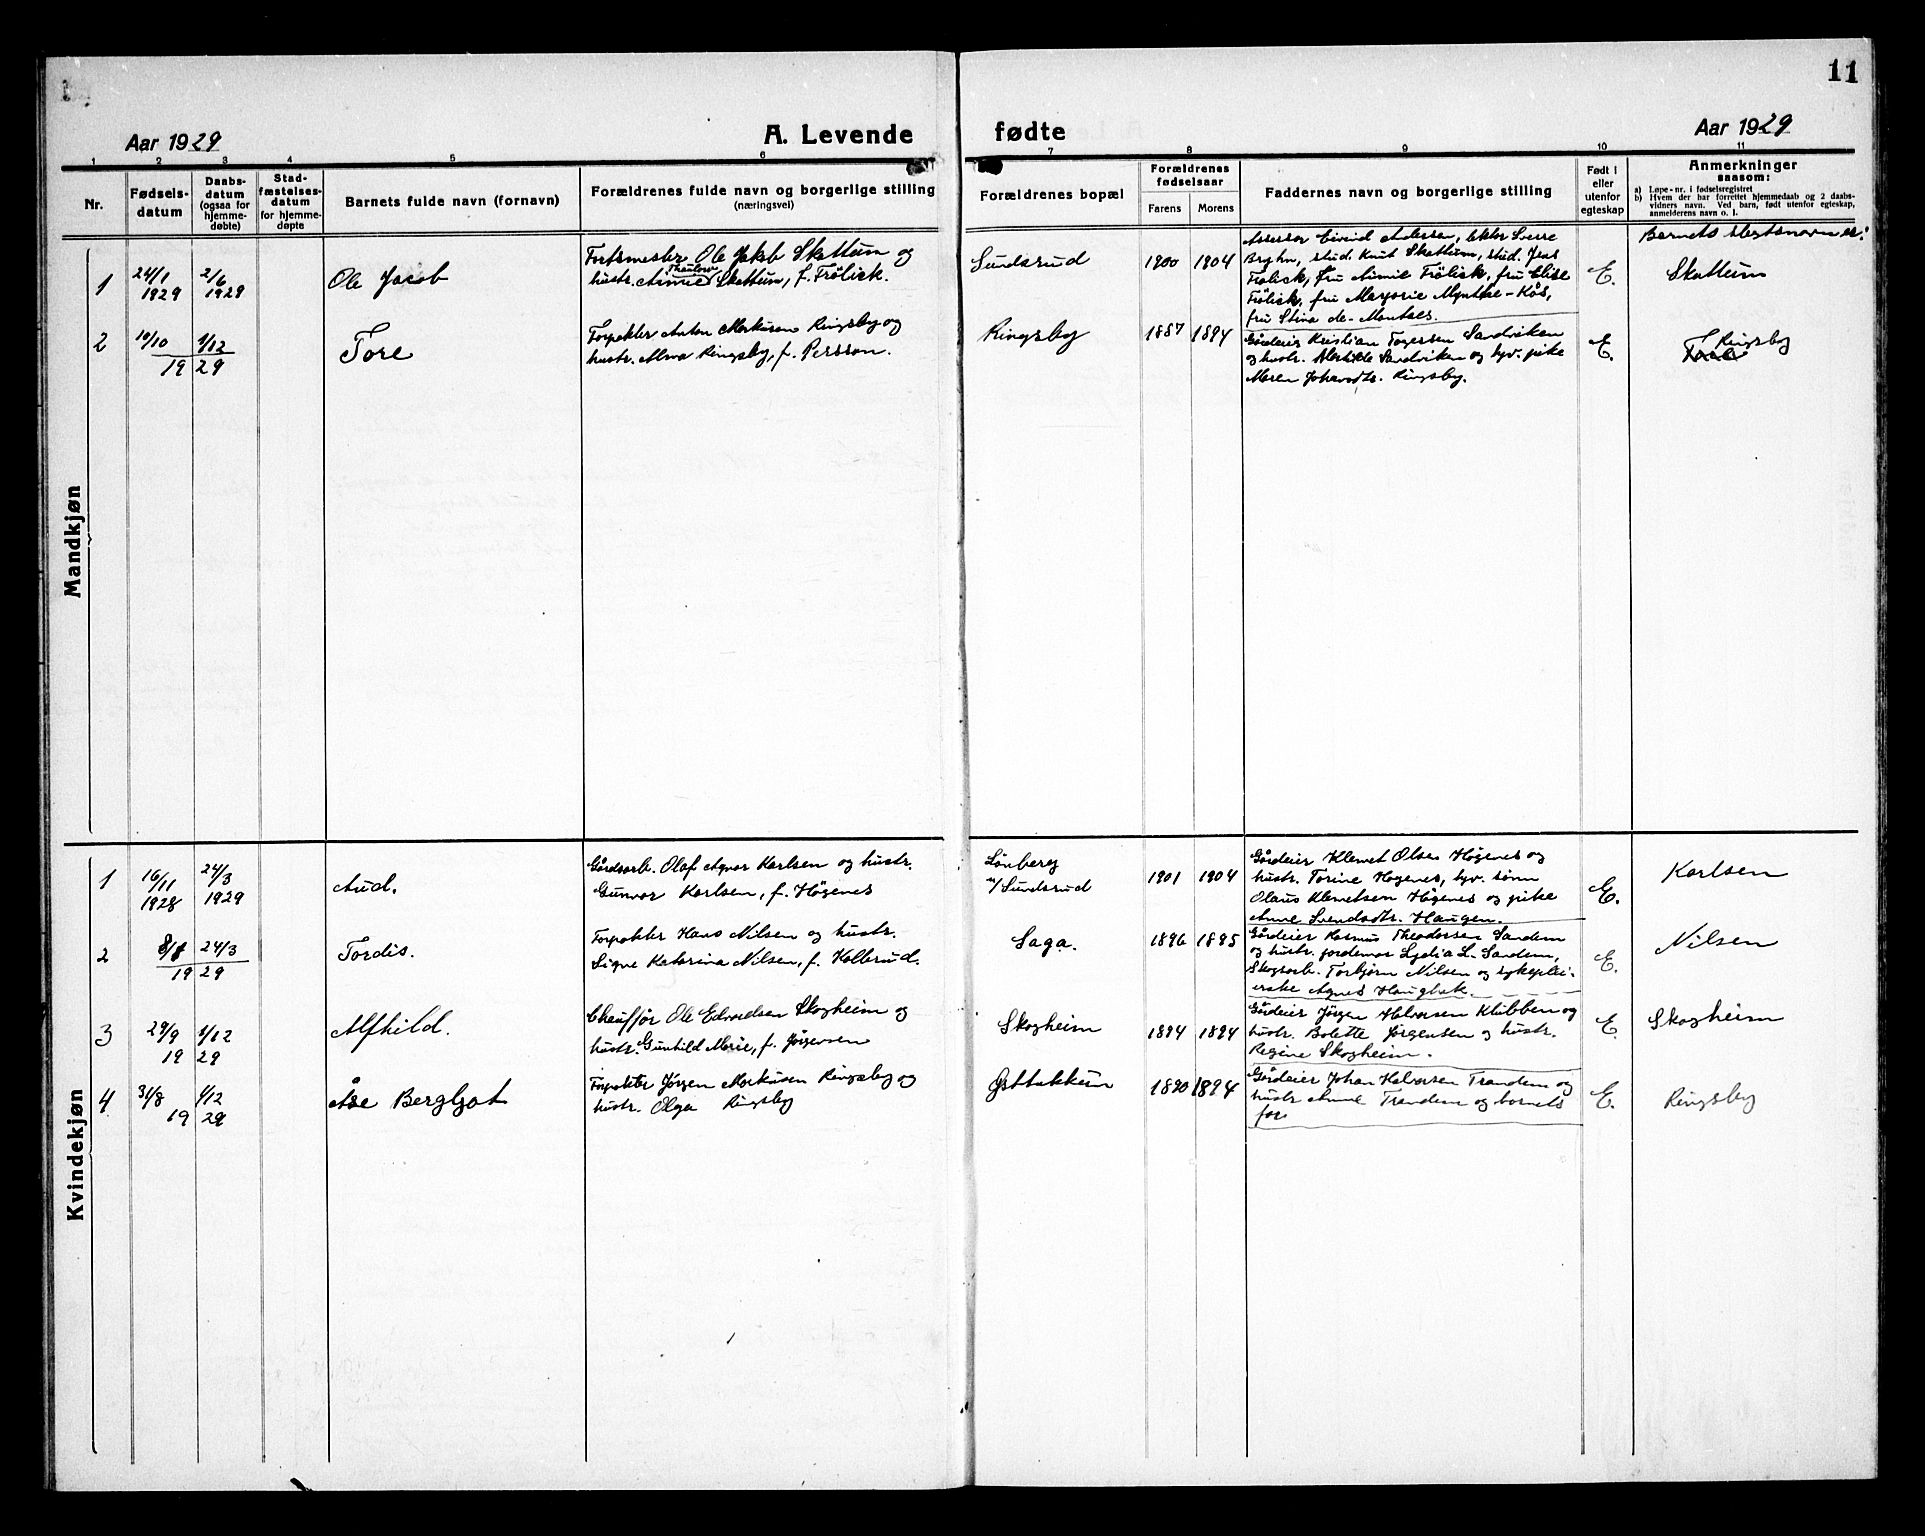 11
Aar 1929
A. Levende fødte
Aar 1929
1 2 3 4 5 6 7 8 9 10 11
Nr.
Fødsels-
datum
Daabs-
datum
(ogsaa for
hjemme-
døbte)
Stad-
fæstelses-
datum
for hjemme-
døpte
Barnets fulde navn (fornavn)
Forældrenes fulde navn og borgerlige stilling
(næringsvei)
Forældrenes bopæl
Forældrenes
fødselsaar
Farens Morens
Faddernes navn og borgerlige stilling
Født i
eller
utenfor
egteskap
Anmerkninger
saasom:
a) Løpe-nr. i fødselsregistret
b) Hvem der har forrettet hjemmedaab og 2 daabs-
vidners navn. Ved barn, født utenfor egteskap,
anmelderens navn o. l.
Barnets slegtsnavn er:
Mandkjøn
1
24/1
1929
2/6
1929
Ole Jacob
Forstmester Ole Jakob Skattum og
Thaulow
hustr. Aimie Skattum, f. Frölick.
Sundsrud
1900 1904
Assessor Eivind Andersen, lektor Sverre
Bryhn, stud. Knut Skattum, stud. Jens
Frölick, fru Aimie Frölick, fru Elise
Frölick, fru Marjorie Mynthe-Kås,
fru Stina de-
E.
Skattum
2
10/10
1/12
19 29
Tore
Forpakter Anton Markusen Ringsby og
hustr. Alma Ringsby, f. Persson.
Ringsby
1887 1894
Gårdeier Kristian Torgersen Sandviken
og hustr. Sandviken og ugv. pike
Maren Johansdtr. Ringsby.
E.
Ringsby
Kvindekjøn
1
16/11
1928
24/3
1929
Aud.
Gårdsarb. Olaf Agnar Karlsen og hustr.
Gunvor Karlsen, f. Högenes
Lönberg
u/Sundsrud
1901 1904
Gårdeier Klemet Olsen Högenes og
hustr. Torine Högenes, ugv. sönn
Olaus Klemetsen Högenes og pike
Anne Svendsdtr. Haugen.
E.
Karlsen
2
8/1
24/3
19 29
Tordis.
Forpakter Hans Nilsen og hustr.
Signe Katarina Nilsen, f. Kolbrud.
Saga.
1896 1895
Gårdeier Rasmus Theodorsen Sandem
og hustr. jordemor Lydia L. Sandem,
Skogsarb. Torbjörn Nilsen og sykeplei-
erske Agnes Haugbak.
E.
Nilsen
3
29/9
1/12
19 29
Alfhild.
Chauffør Ole Edvardsen Skogheim og
hustr. Gunhild Marie, f. Jörgensen
Skogheim
1894 1894
Gårdeier Jörgen Halvorsen Klibben og
hustr. Bolette Jörgensen og hustr.
Regine Skogheim.
E.
Skogheim
4
31/8
1/12
19 29
Åse Bergljot
Forpakter Jörgen Markusen Ringsby og
hustr. Olga Ringsby
1890 1894
Gårdeier Johan Halvorsen Trandem og
hustr. Anne Trandem og barnets
far
E.
Ringsby